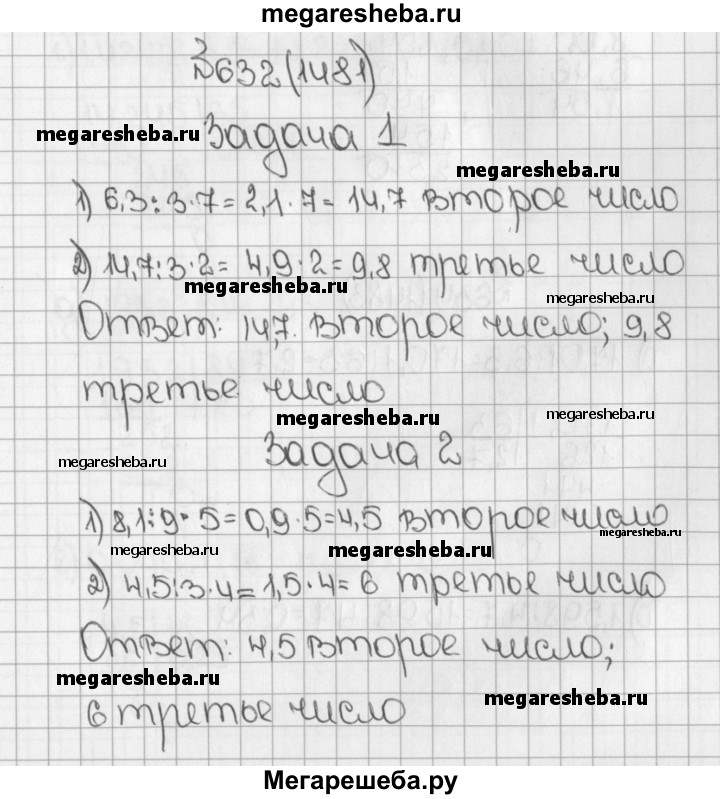 megaresheba.ru
№632(1481)
megaresheba.ru Задача 1
megaresheba.ru
1) 6,3:3·7=2,1·7=14,7 второе число
2) 14,7:3·2=4,9·2=9,8 третье число
megaresheba.ru megaresheba.ru
Ответ: 14,7. второе число; 9,8
третье число
megaresheba.ru megaresheba.ru
megaresheba.ru Задача 2
megaresheba.ru
1) 8,1:9·5=0,9·5=4,5 второе число
megaresheba.ru megaresheba.ru megaresheba.ru
2) 4,5:3·4=1,5·4=6 третье число
Ответ: 4,5 второе число;
megaresheba.ru megaresheba.ru
6 третье число
Мегарешеба.ру